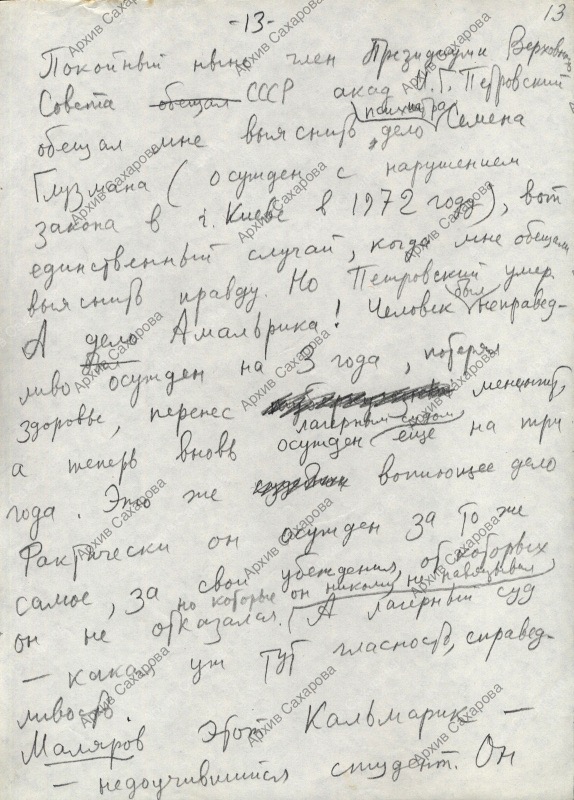 -13-
13
Покойный ныне член Президиума Верховного
Совета обещал СССР акад. И.Г. Петровский
психиатра
обещал мне выяснить дело Семена
Глузмана ( осужден с нарушением
закона в г. Киеве в 1972 году), вот
единственный случай, когда мне обещали
выяснить правду. Но Петровский умер.
А дело Амальрика! Человек был неправед-
ливо осужден на 3 года, потерял
здоровье, перенес менингит,
лагерным судом
а теперь вновь осужден еще на три
года. Это же вопиющее дело
Фактически он осужден за то же
самое, за свои убеждения, от которых
но которые он никому не навязывал
он не отказался. А лагерный суд
– какая уж тут гласность, справед-
ливость.
Маляров Этот Кальмарик –
– недоучившийся студент. Он
Архив Сахарова